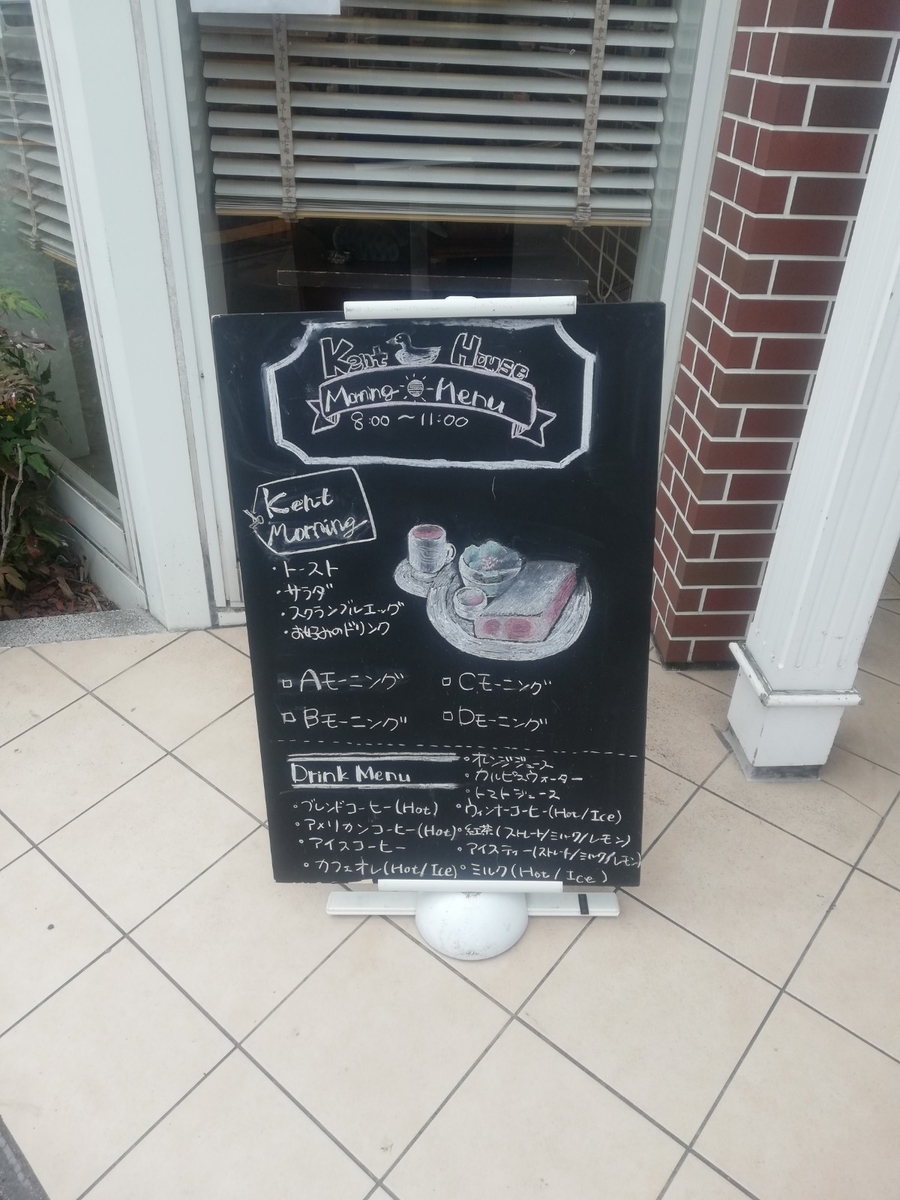 Kent House
Morning Menu
8:00〜11:00
Kent
Morning
・トースト
・サラダ
・スクランブルエッグ
・お好みのドリンク
□ Aモーニング
□ Bモーニング
□ Cモーニング
□ Dモーニング
Drink Menu
○ブレンドコーヒー(Hot)
○アメリカンコーヒー(Hot)
○アイスコーヒー
○カフェオレ(Hot/Ice)
○オレンジジュース
○カルピスウォーター
○トマトジュース
○ウィンナーコーヒー(Hot/Ice)
○紅茶(ストレート/ミルク/レモン)
○アイスティー(ストレート/ミルク/レモン)
○ミルク(Hot/Ice)